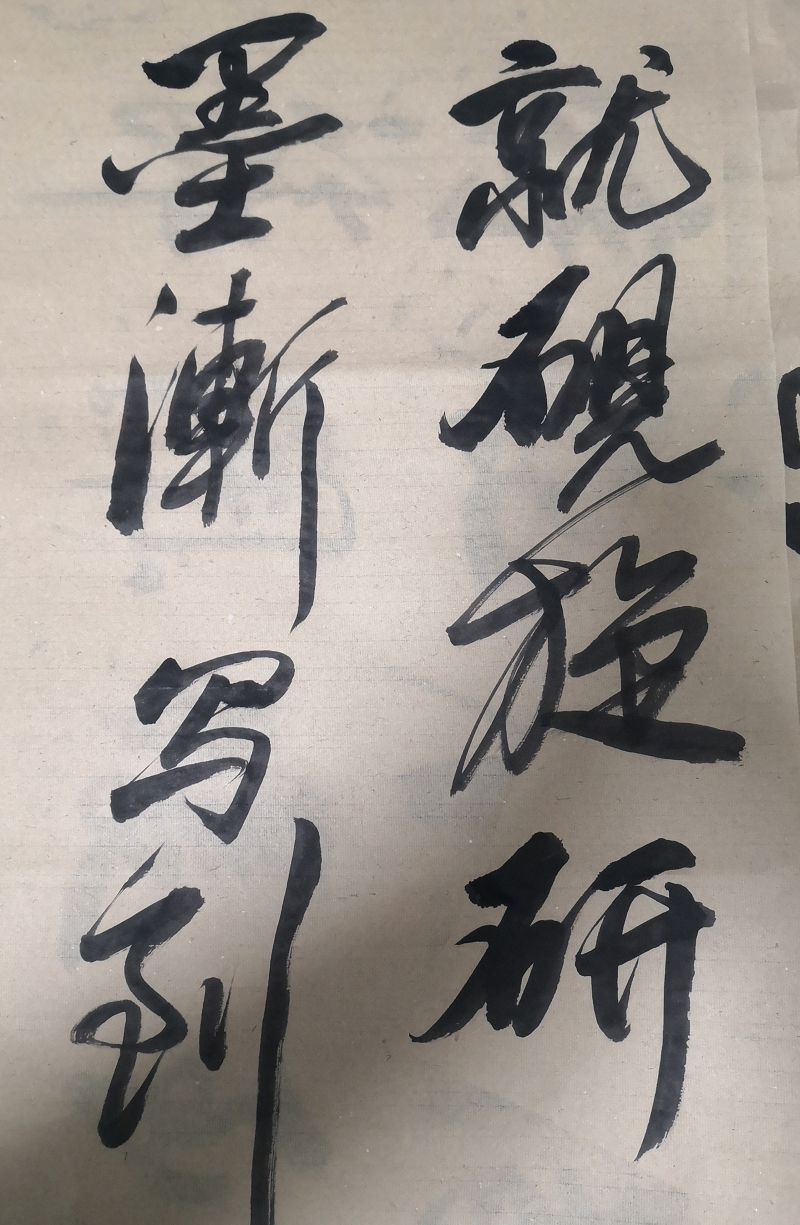 就硯旋研
墨漸写到